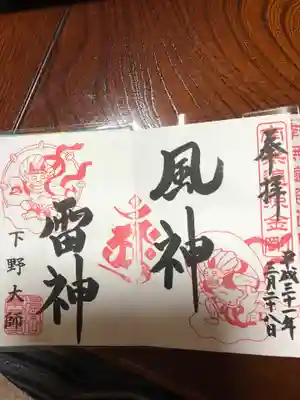 奉拝
平成三十一年
三月二十八日
風神
雷神
下野大師